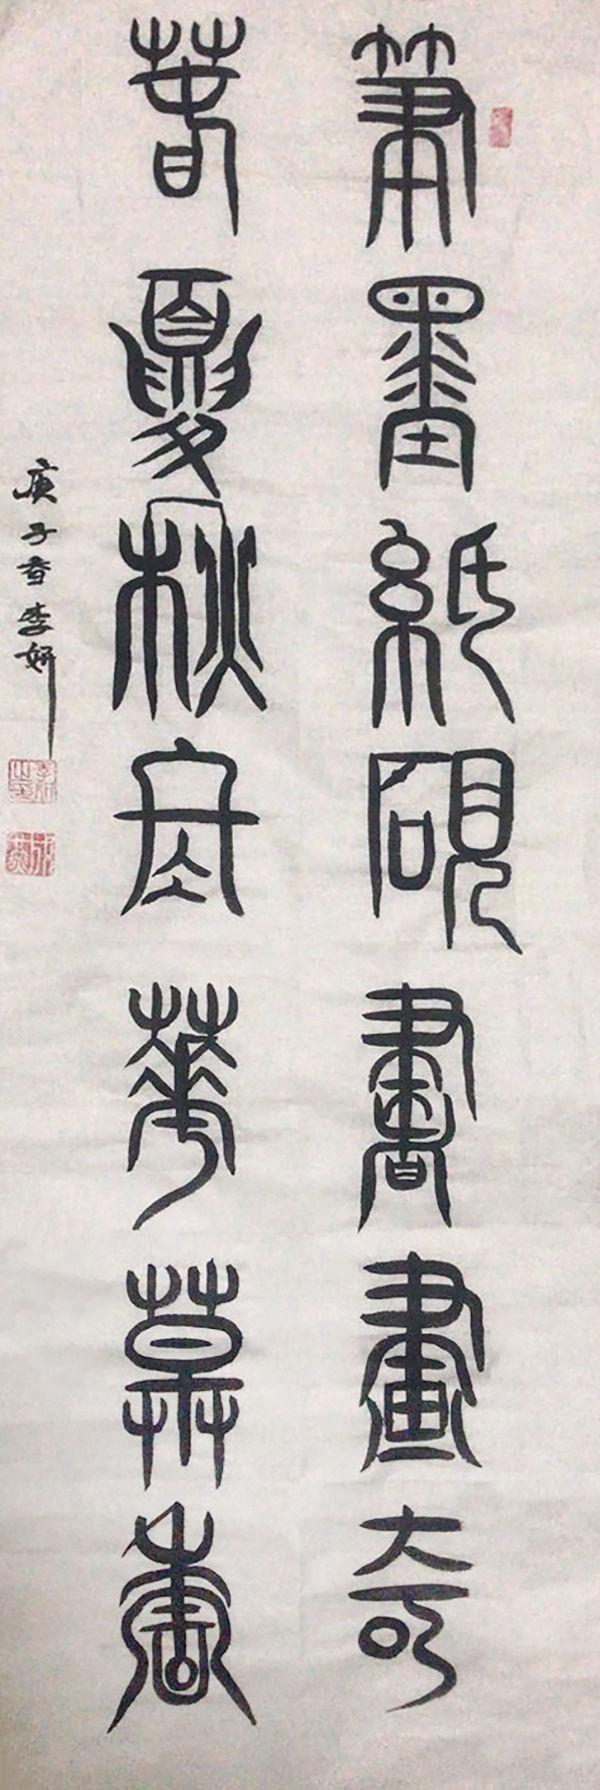 筆墨紙硯書畫奇
春夏秋冬華
庚子春李妍